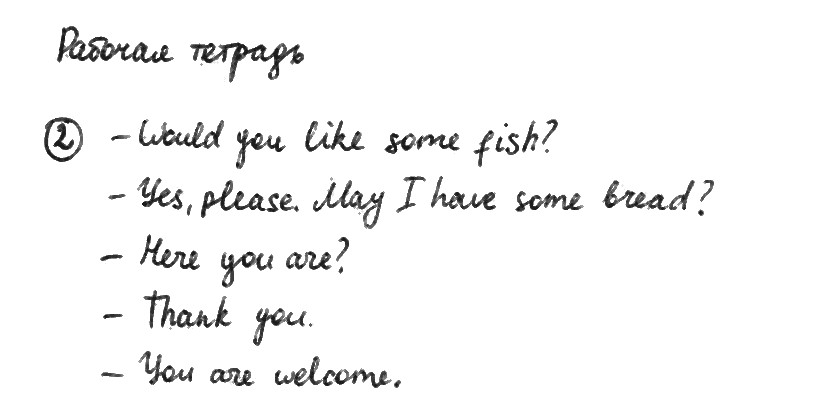 Рабочая тетрадь
② – Would you like some fish?
– Yes, please. May I have some bread?
– Here you are?
– Thank you.
– You are welcome.